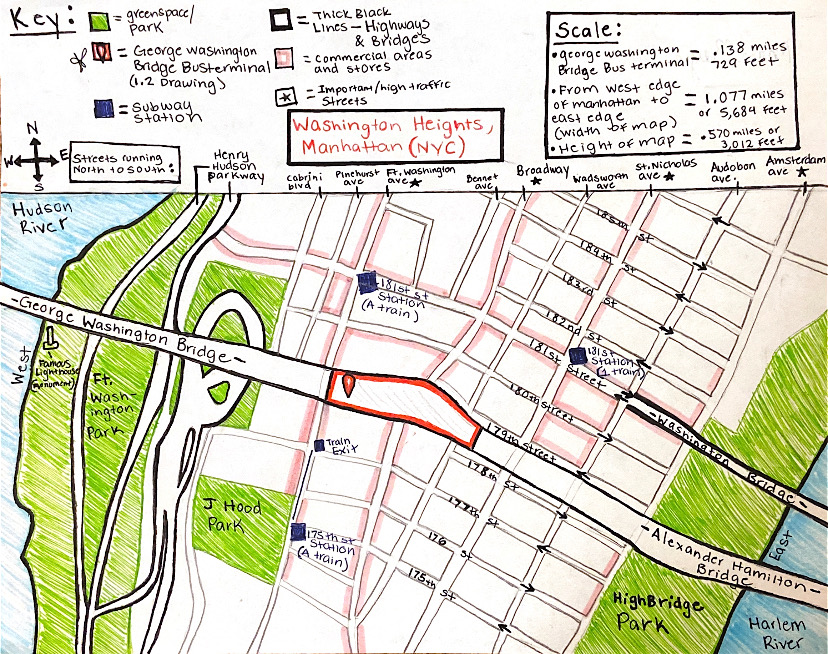 Key:
= greenspace/
park
= George Washington
Bridge Busterminal
(1.2 Drawing)
= Subway
Station
= Thick Black
Lines - Highways
& Bridges
= commercial areas
and stores
= Important/high traffic
Streets
Scale:
• george washington
Bridge Bus terminal = .138 miles
729 Feet
• From west edge
of manhattan to
east edge
(width of map) = 1.077 miles
or 5,684 feet
• Height of map = .570 miles or
3,012 Feet
Washington Heights,
Manhattan (NYC)
N
W E
S
Streets running
North to South:
Henry
Hudson
parkway
Cabrini
blvd
Pinehurst
ave
Ft. Washington
ave
Bennet
ave
Broadway
Wadsworn
ave
St. Nicholas
ave
Audobon
ave.
Amsterdam
ave
Hudson
River
-George Washington Bridge-
West
Famous
Lighthouse
(monument)
Ft.
Wash-
ington
Park
181st st
Station
(A train)
185th st
184th st
183rd st
182nd st
181st Street
181st
Station
(1 train)
180th street
179th street
178th st
177th st
176 st
175th st
Train
Exit
J Hood
Park
175th st
Station
(A train)
-Washington Bridge-
-Alexander Hamilton-
Bridge
East
HighBridge
Park
Harlem
River